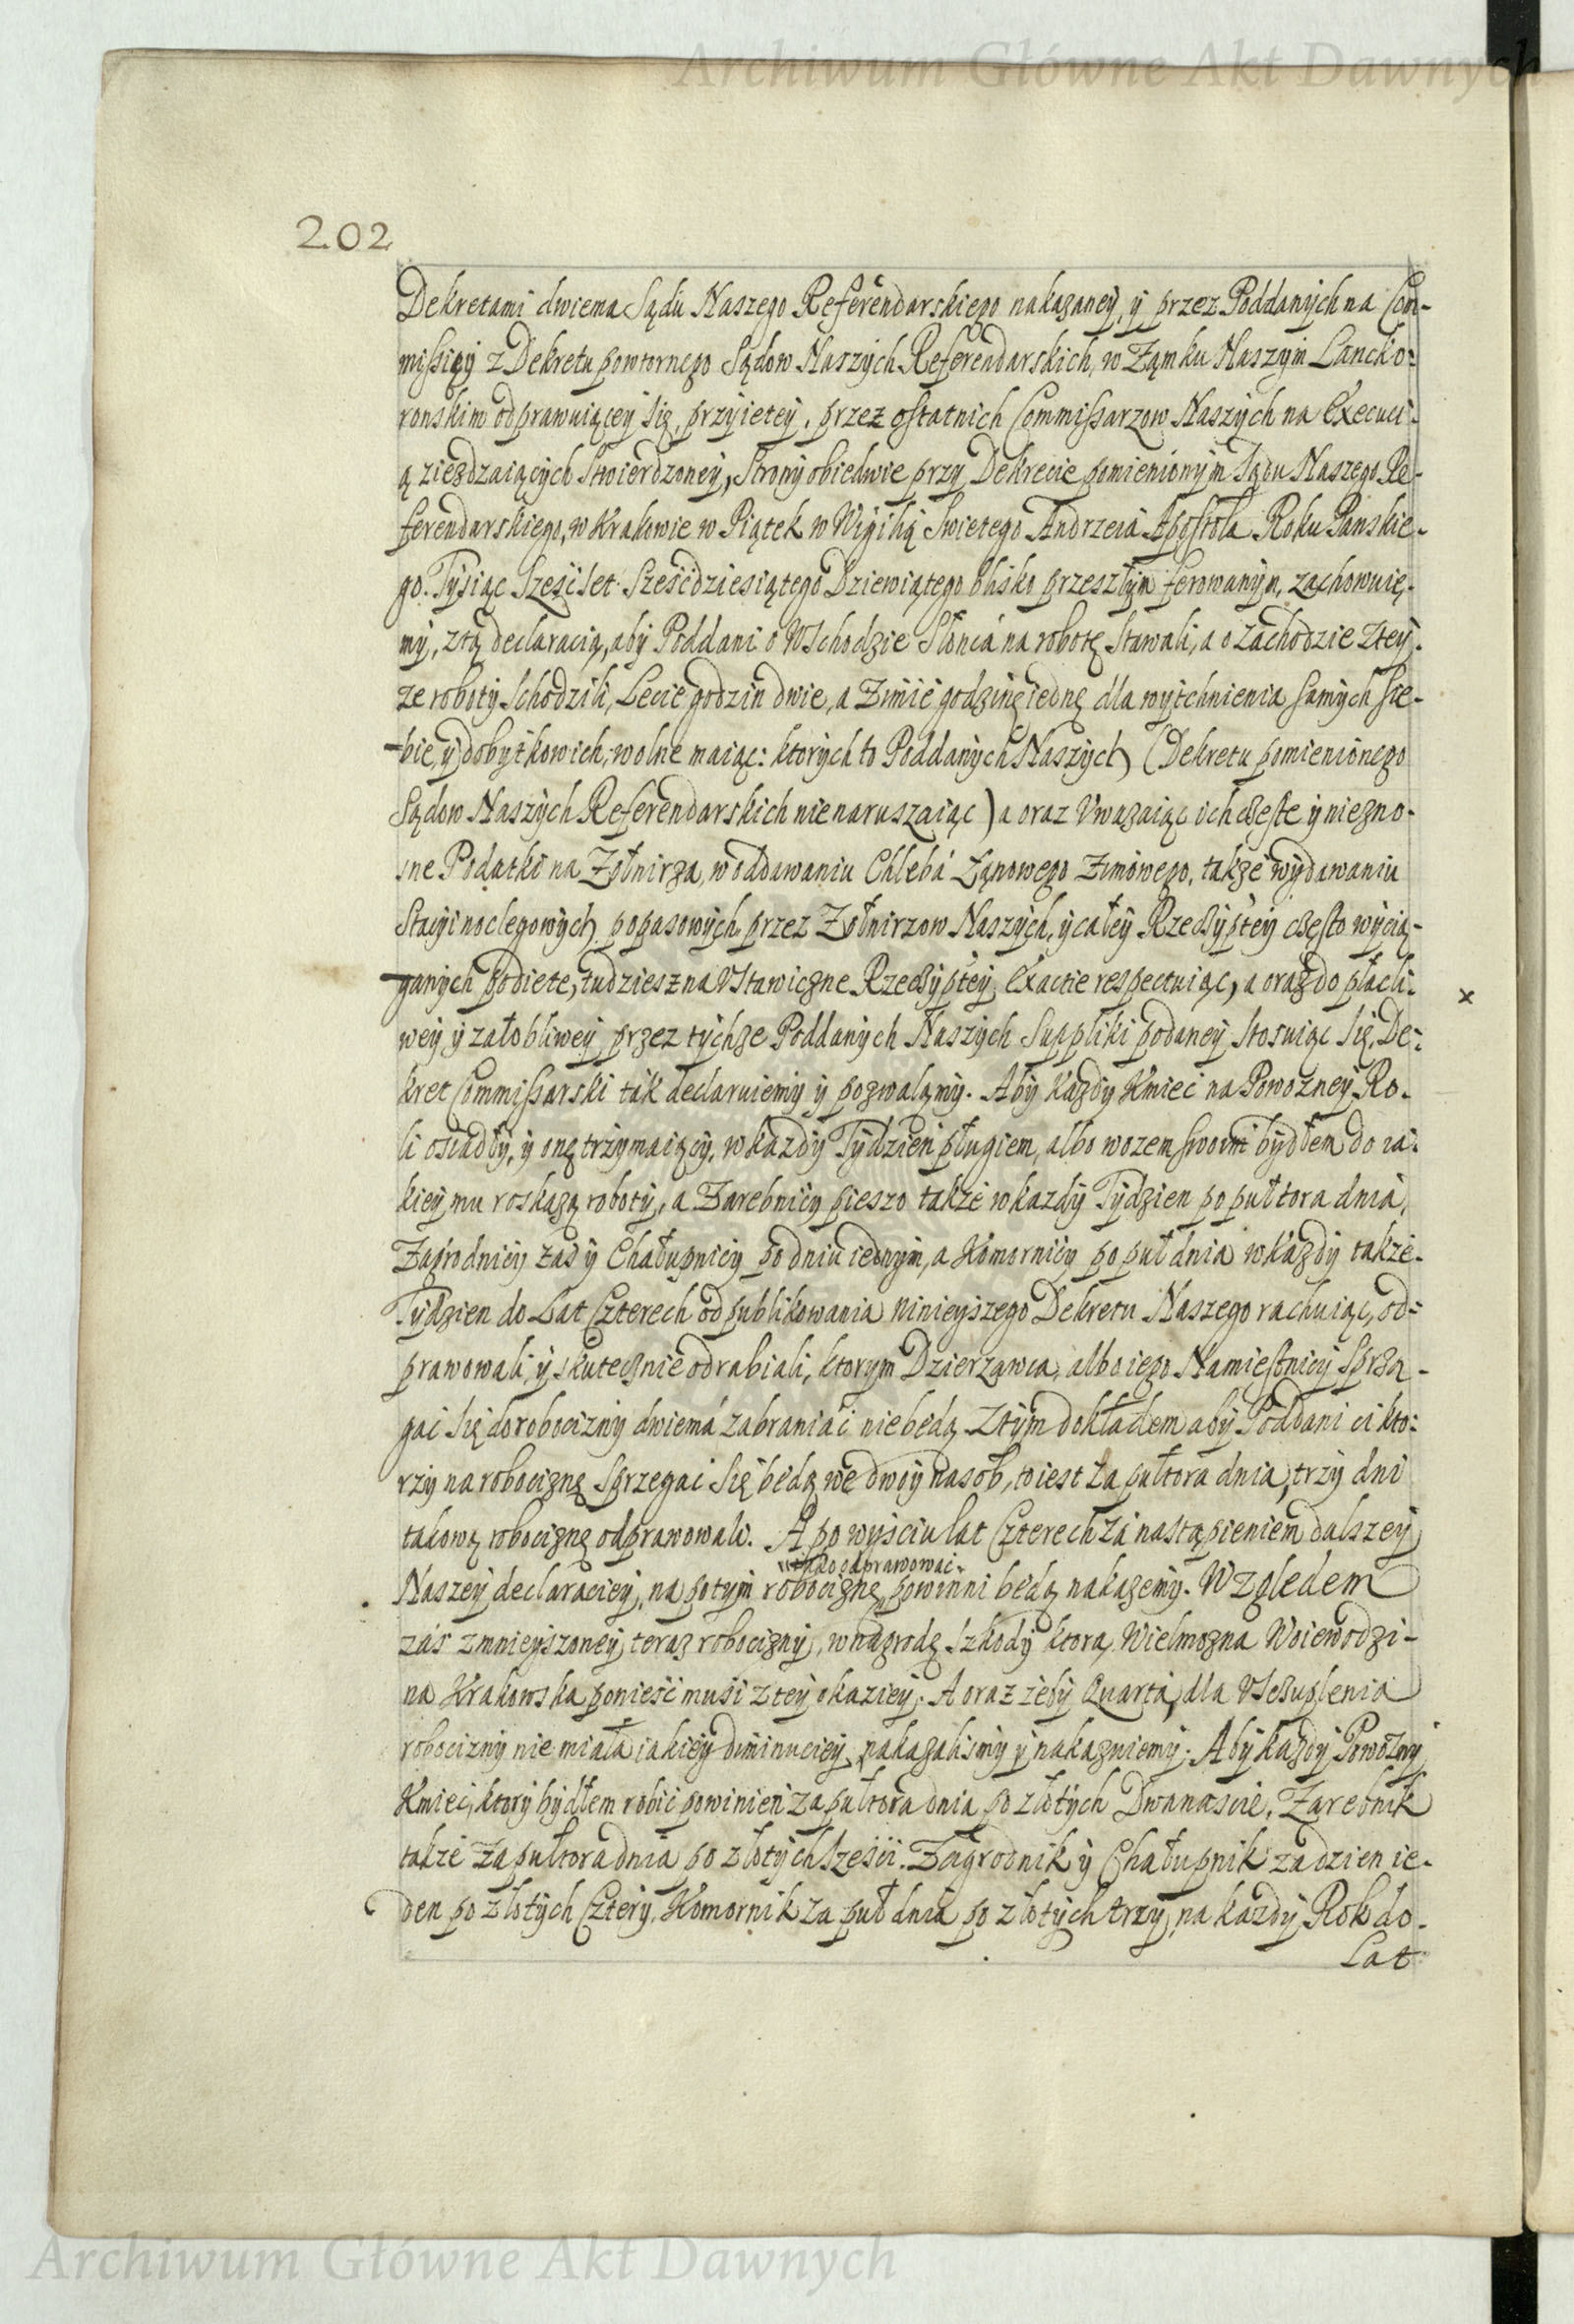 Archiwum Główne Akt Dawnych
202
Dekretami dwiema Sądu Naszego Referendarskiego nakazaney, y przez Poddanych na Com-
missiey z Dekretu powtornego Sądow Naszych Referendarskich, w Zamku Naszym Lancko-
ronskim odprawuiącey się, przyietey, przez ostatnich Commissarzow Naszych na Executi-
ą ziezdzaiących stwierdzoney, Strony obiedwie przy Dekrecie pomienionym Sądu Naszego Re-
ferendarskiego, w Krakowie w Piątek w Wigilią Swietego Andrzeia Apostoła Roku Panskie-
go. Tysiąc Sześćset Sześćdziesiątego Dziewiątego blisko przeszłym ferowanym, zachowuię-
my, ztą declaracią, aby Poddani o Wschodzie Słonca na robotę stawali, a o zachodzie ztey-
ze roboty schodzili, Lecie godzin dwie, a Zimie godzinę iednę dla wytchnienia samych sie-
bie, y dobytkow ich, wolne maiąc: ktorych to Poddanych Naszych (Dekretu pomienionego
Sądow Naszych Referendarskich nie naruszaiąc) a oraz Uwazaiąc ich częste y niezno-
sne Podatki na Zołnirza, w oddawaniu Chleba Łanowego Zimowego, takze wydawaniu
Stacyi noclegowych popasowych przez Zołnirzow Naszych, y całey Rzeczyptey często wycią-
ganych podięte, tudziesz na Ustawiczne Rzeczyptey Exactie respectuiąc, a oraz do płacli-
wey y załobliwey przez tychze Poddanych Naszych Suppliki podaney stosuiąc się, De-
kret Commissarski tak declaruiemy y pozwalamy. Aby kazdy Kmiec na Powozney Ro-
li osiadły, y onę trzymaiący, w kazdy Tydzien pługiem, albo wozem swoim bydłem do ia-
kiey mu roskazą roboty, a Zarebnicy pieszo takze w kazdy Tydzien po pułtora dnia,
Zagrodnicy zas y Chałupnicy po dniu iednym, a Komornicy po puł dnia w kazdy takze
Tydzien do Lat Czterech od publikowania ninieyszego Dekretu Naszego rachuiąc, od-
prawowali, y skutecznie odrabiali, ktorym Dzierzawca, albo iego Namiestnicy sprzą-
gac się do robocizny dwiema zabraniac nie będą. Ztym dokładem aby Poddani ci kto-
rzy na robociznę sprzegac się będą we dwoy nasob, to iest za pułtora dnia, trzy dni
takową robociznę odprawowali. A po wysciu lat Czterech za nastąpieniem dalszey
iako odprawować
Naszey declaraciey, na potym robociznę powinni będą nakazemy. Względem
zas zmnieyszoney teraz robocizny, w nagrodę szkody ktorą Wielmozna Woiewodzi-
na Krakowska ponieść musi z tey okaziey. A oraz zeby Quarta, dla Uszczuplenia
robocizny nie miała iakiey diminuciey, nakazalismy y nakazuiemy. Aby kazdy Powozny
Kmiec, ktory bydłem robic powinien za pułtora dnia po złotych Dwanascie, Zarebnik
takze za pułtora dnia po złotych szesci. Zagrodnik y Chałupnik za dzien ie-
den po złotych Cztery, Komornik za puł dnia po złotych trzy, na kazdy Rok do
Lat
Archiwum Główne Akt Dawnych